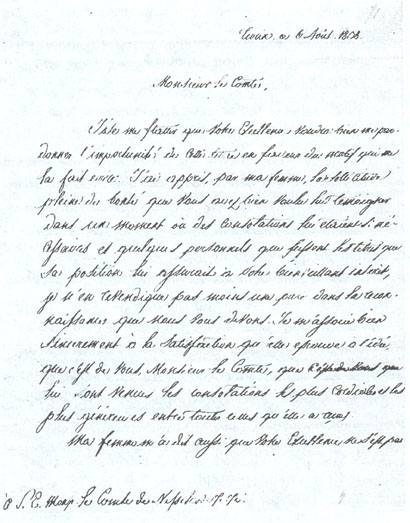 71
ce 6 Août 1858.
Monsieur le Comte,
J'ose me flatter que Votre Excellence voudra bien me par-
donner l'importunité de cette en faveur du motif qui me
la fait J'ai appris, par ma femme, la
pleine de bonté que vous avez bien voulu lui témoigner
dans un moment où des consolations lui étaient si né-
cessaires et quelques personnels que fussent les titres que
sa position lui assurait à votre bienveillant intérêt,
je n'en revendique pas moins une part dans la recon-
naissance que nous vous devons. Je m'associe bien
sincèrement à la satisfaction qu'elle éprouve à l'idée
que c'est de vous, Monsieur le Comte, que
lui sont venues les consolations les plus cordiales et les
plus généreuses entre toutes celles qu'elle a
Ma femme m'a dit aussi que Votre Excellence ne s'est pas
à S. E. le Comte de